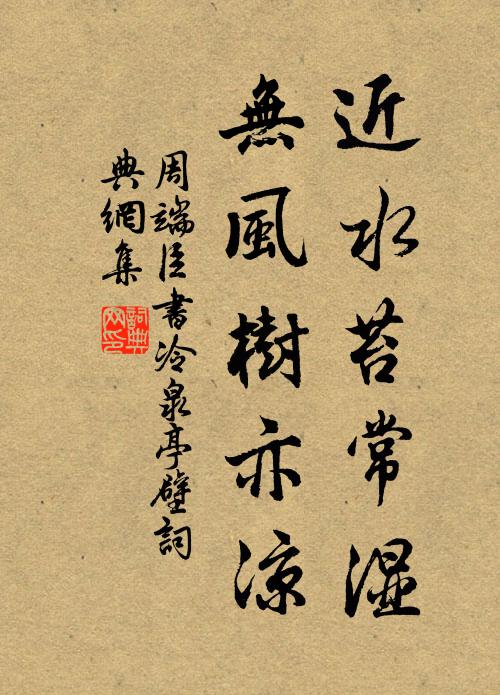 近水苔常湿
無風樹亦涼
周端臣書冷泉亭壁詞
典網集
詞典
网印